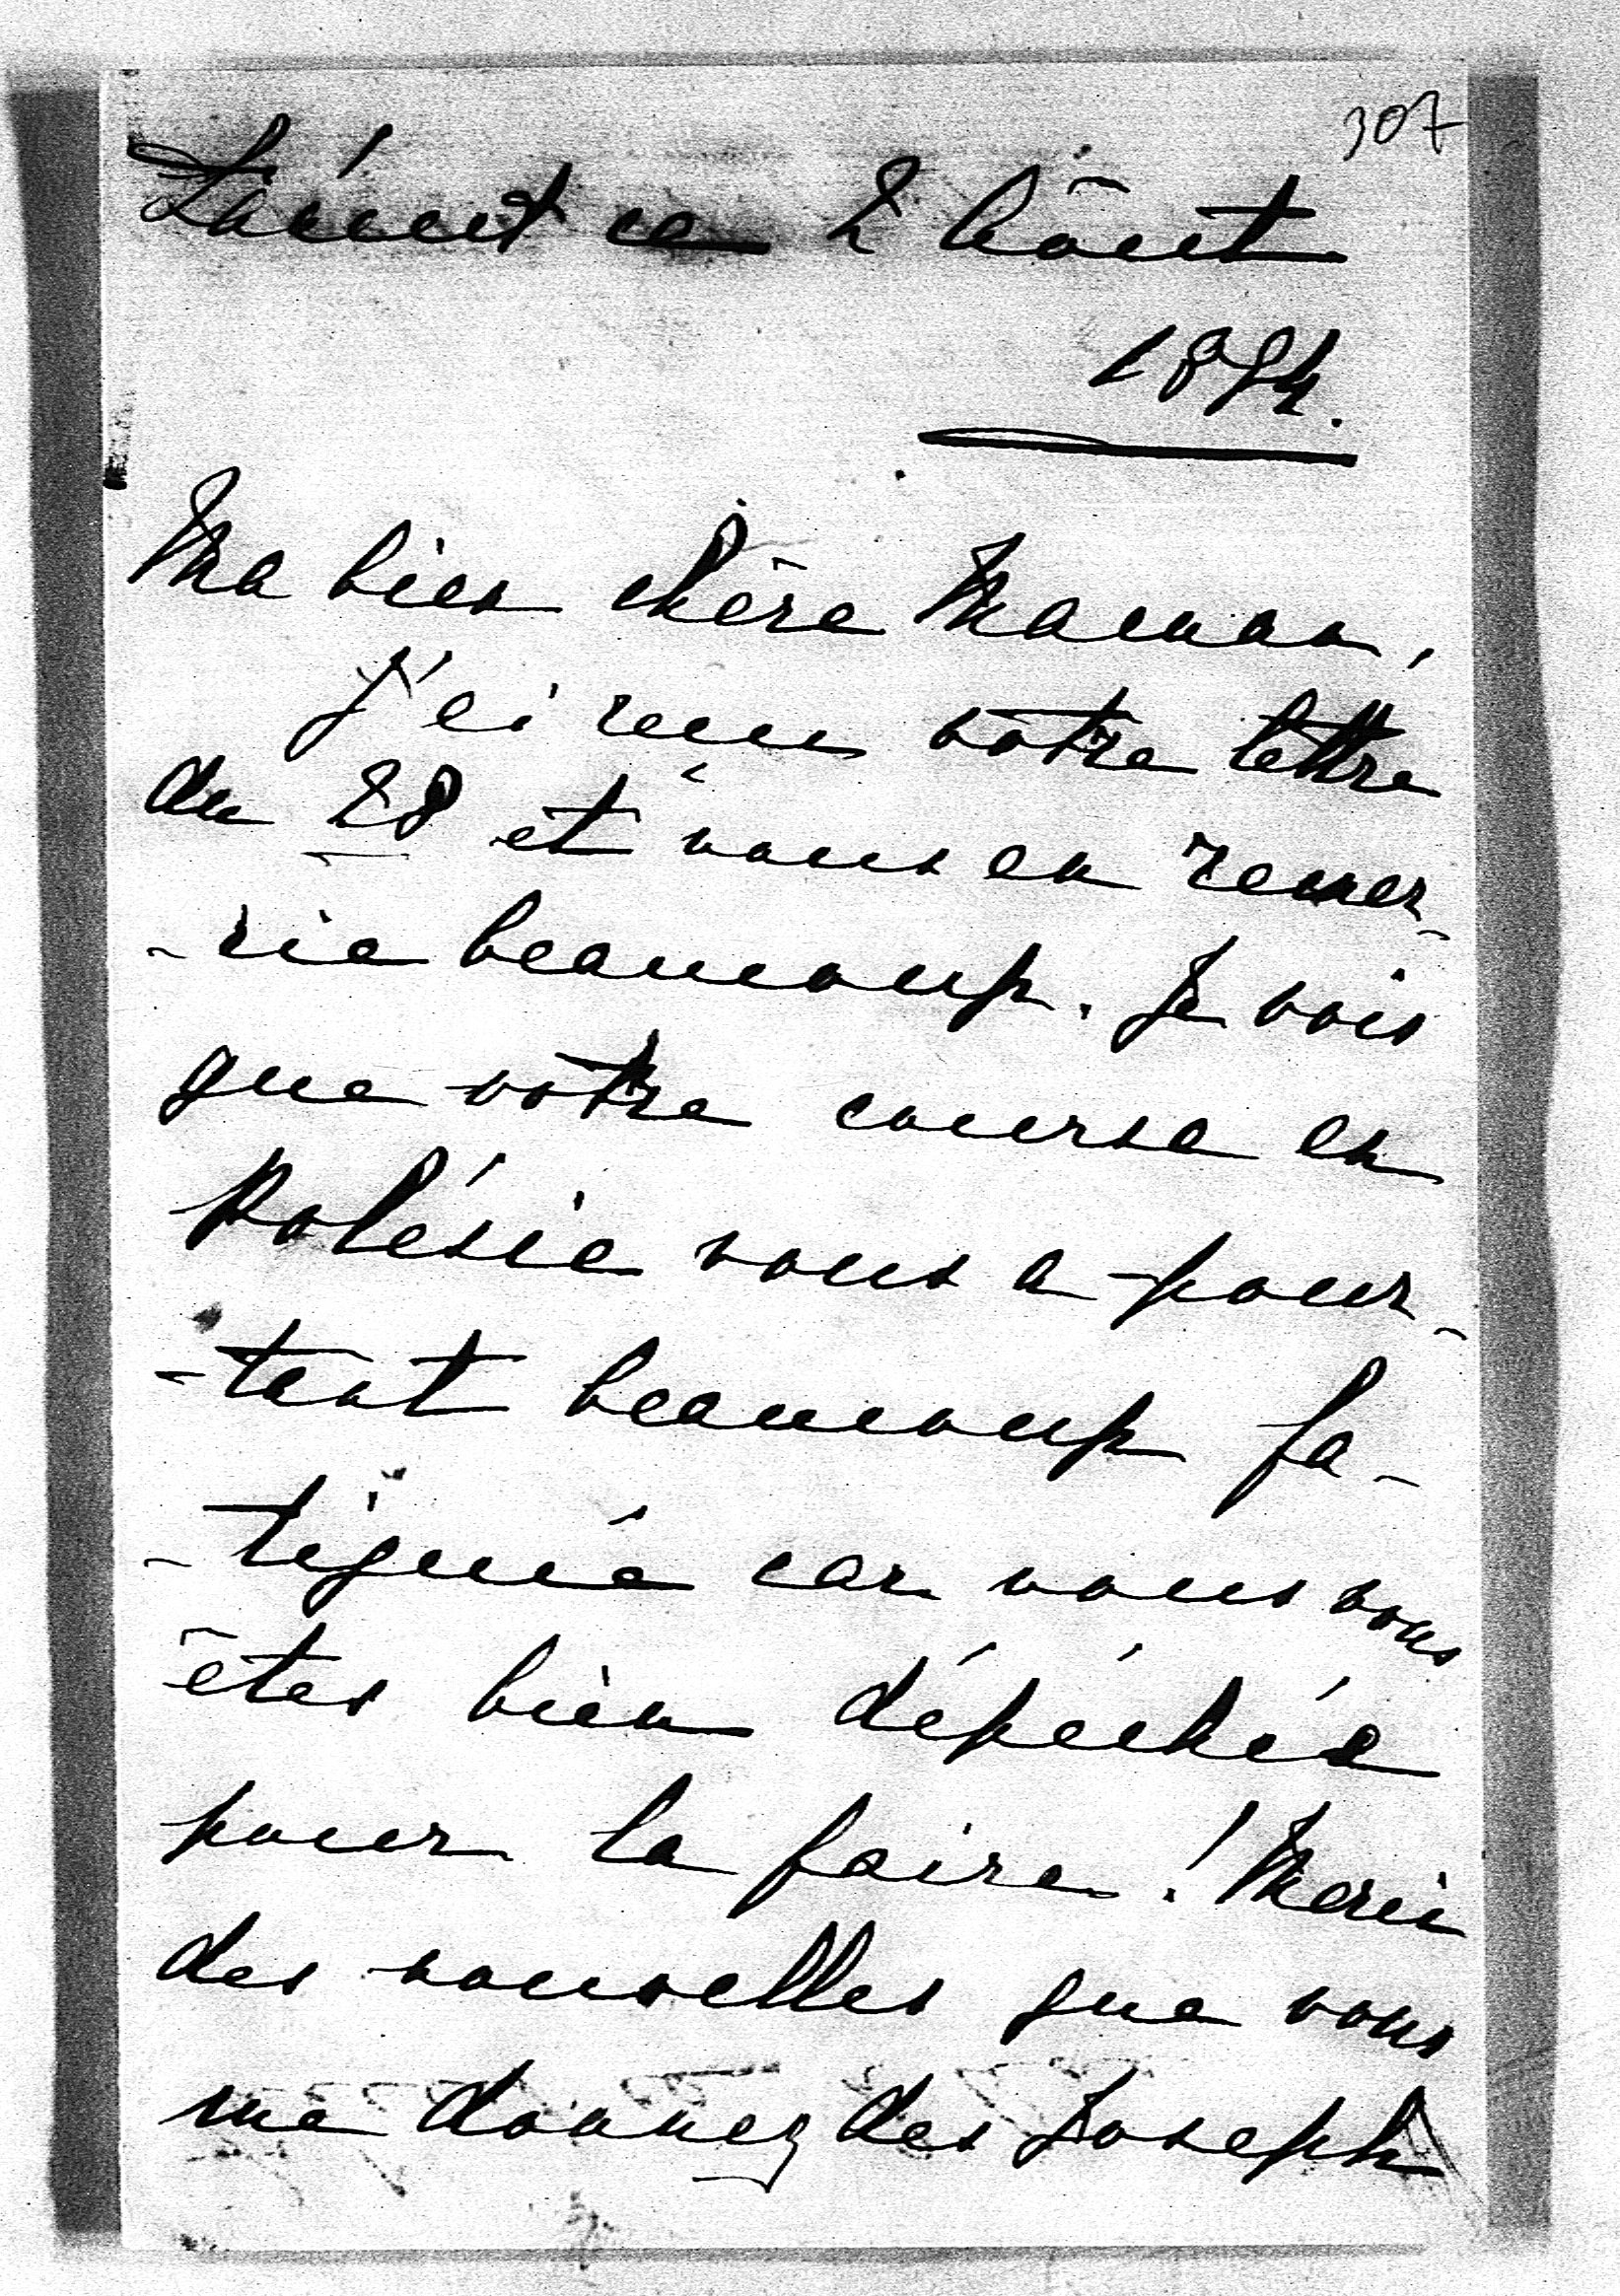 307
Łańcut ce 2 Août
1894.
Ma bien chère Maman,
J'ai reçu votre lettre
du 28 et vous en remer-
-cie beaucoup. Je vois
que votre course en
Polésie vous a pour-
-tant beaucoup fa-
-tiguée car vous vous
êtes bien dépéchée
pour la faire! Merci
des nouvelles que vous
me donnez des Joseph